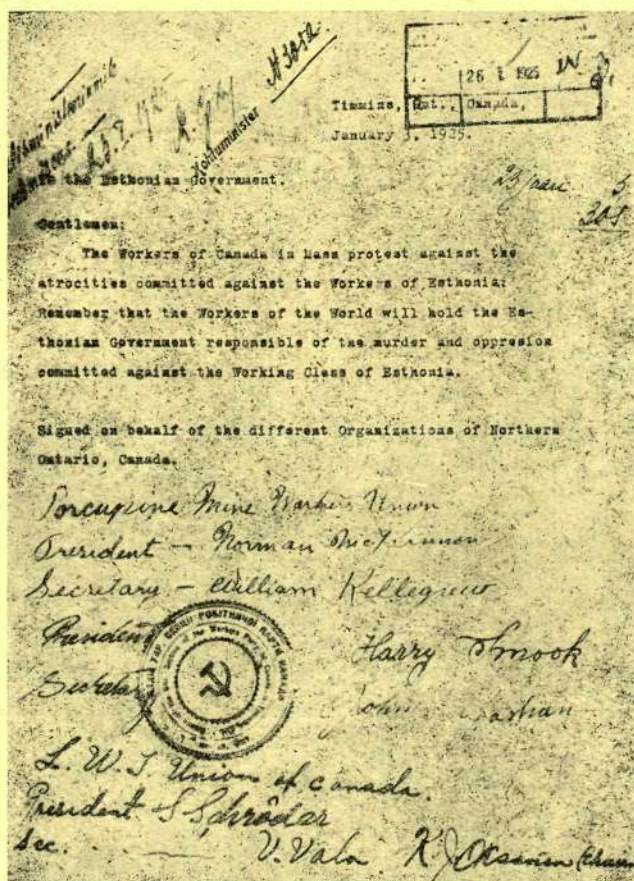 N 3052
26 I 1925
Timmins, Ont., Canada,
January 3, 1925.
To the Esthonian Government.
Gentlemen:
The Workers of Canada in Mass protest against the
atrocities committed against the Workers of Esthonia:
Remember that the Workers of the World will hold the Es-
thonian Government responsible of the murder and oppresion
committed against the Working Class of Esthonia.
Signed on behalf of the different Organizations of Northern
Ontario, Canada.
Porcupine Mine Workers Union
President — Norman
Secretary — William Kellegrew
President Harry Smook
Secretary John
L. W. I Union of Canada.
President S Schrödar
Sec. V. Valn K.